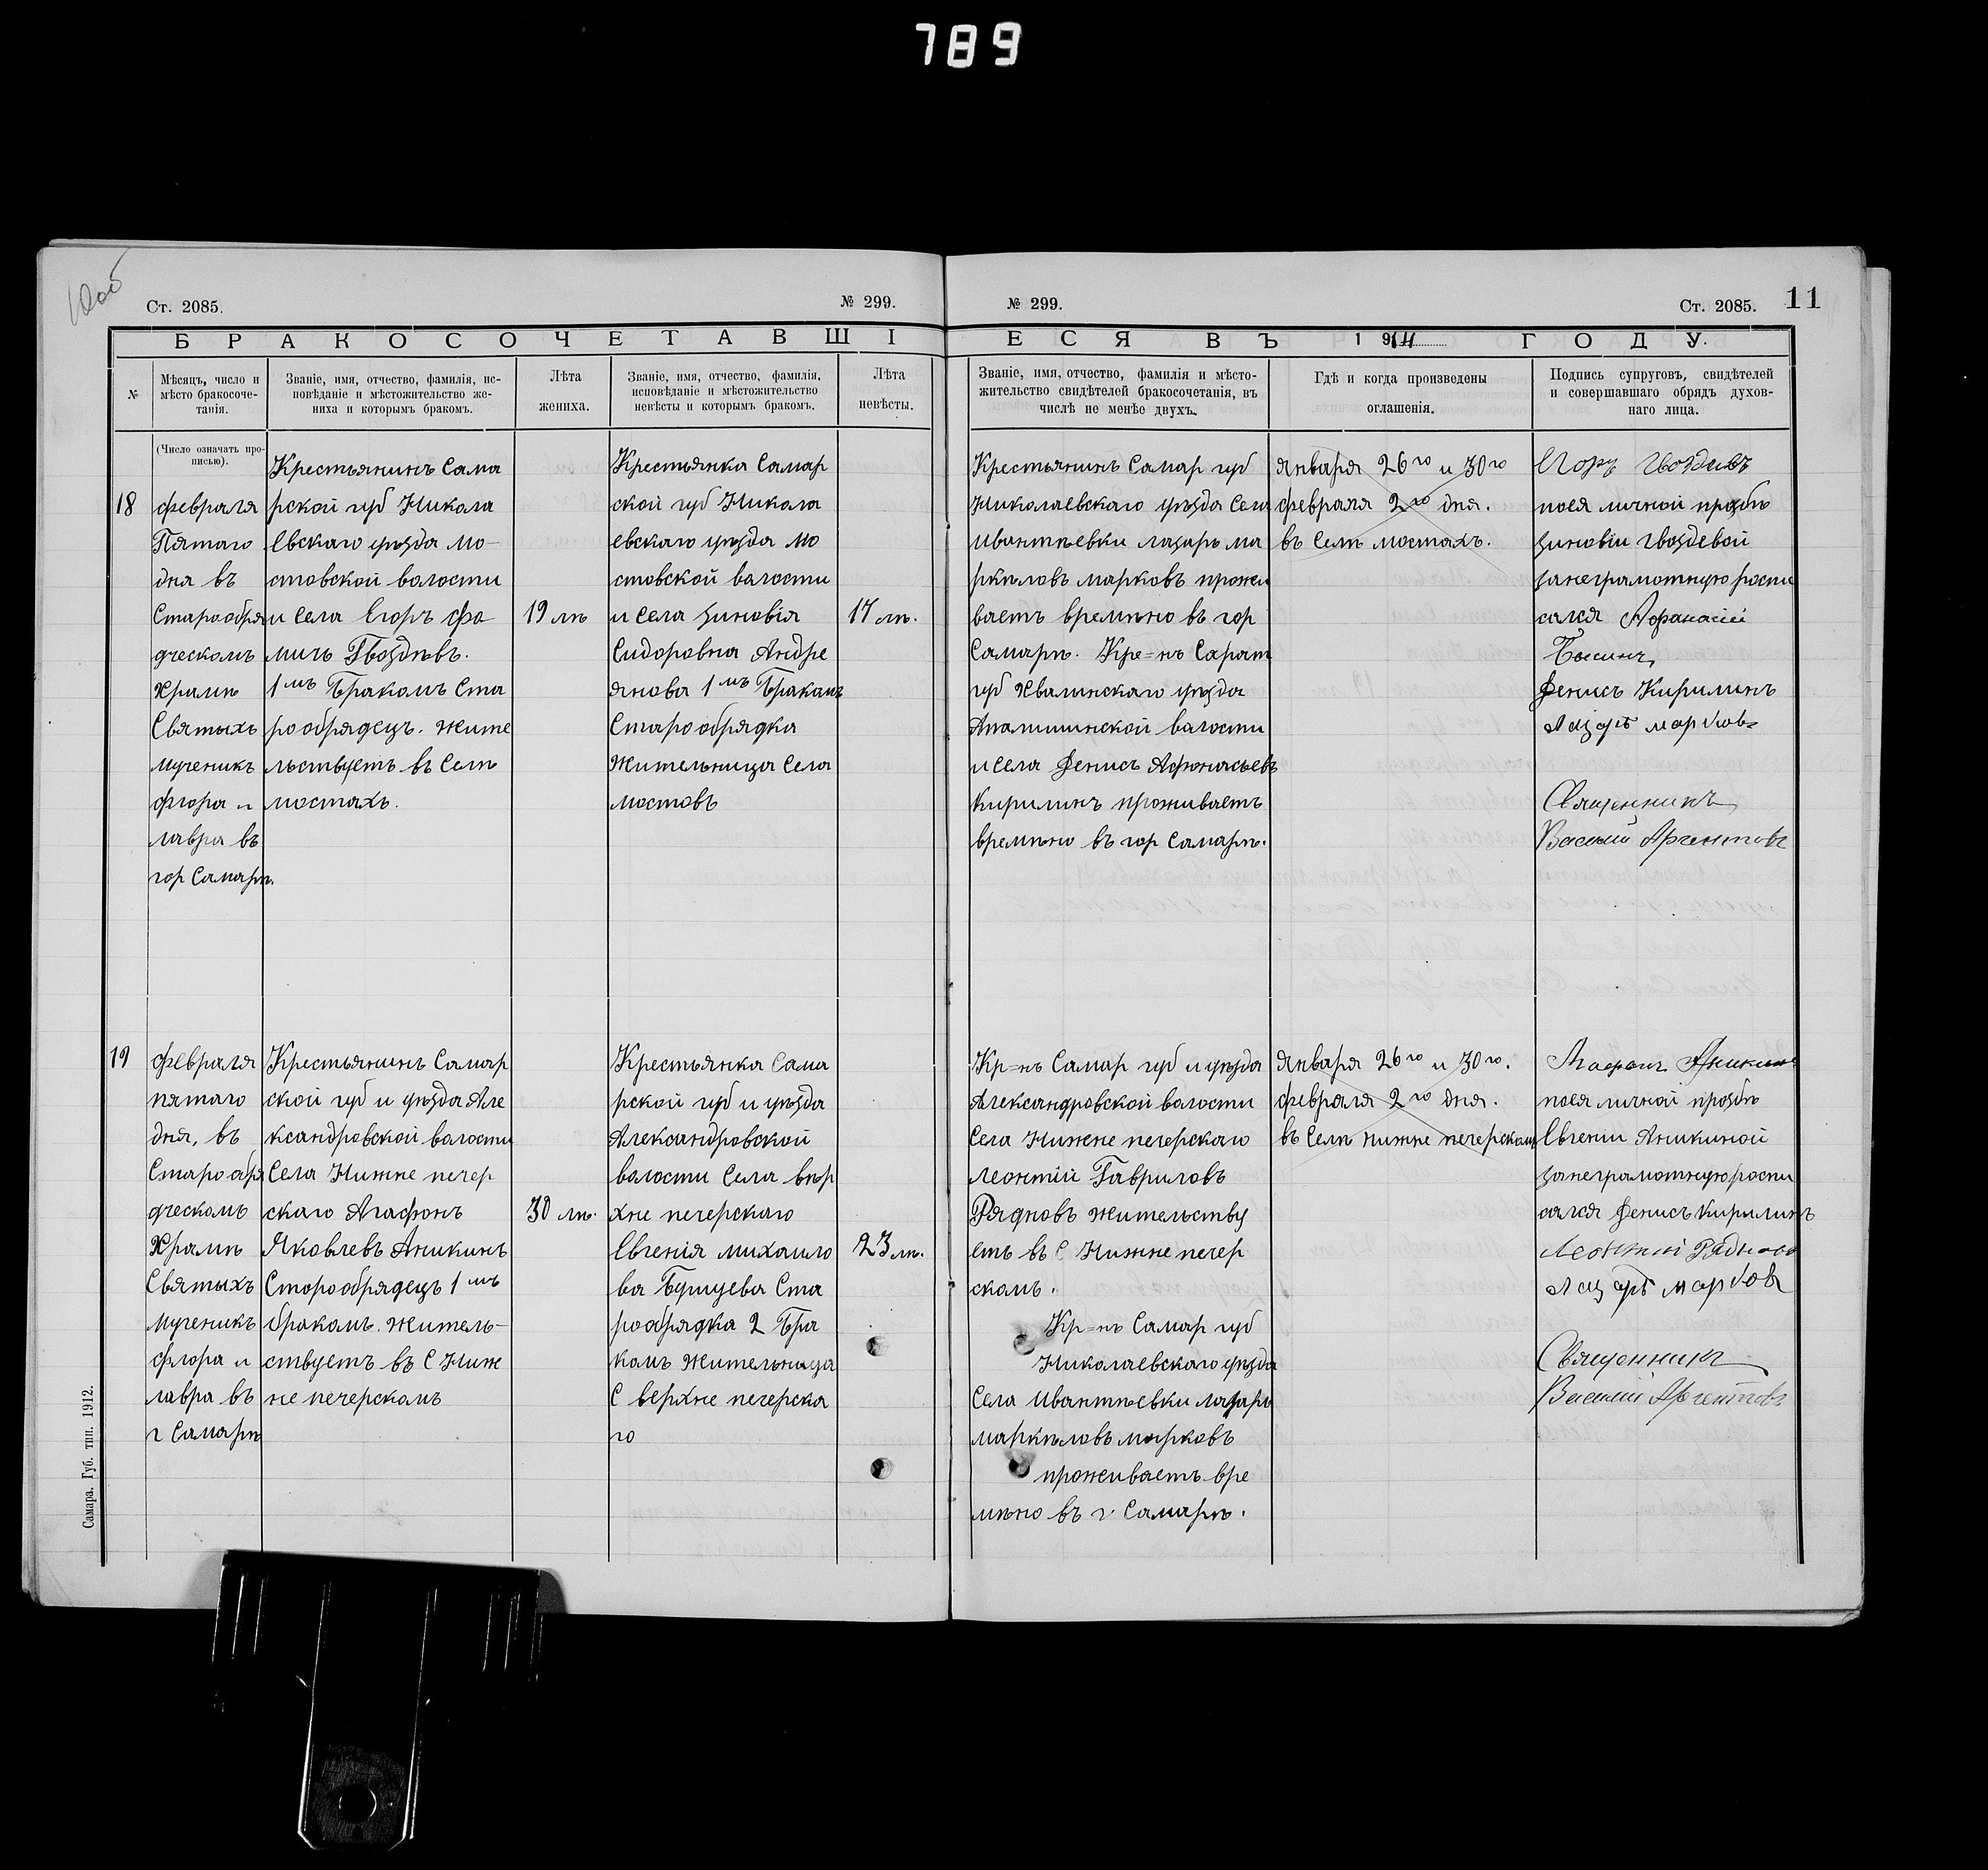 789
10об
Ст. 2085.
№ 299.
№ 299.
Ст. 2085.
11
БРАКОСОЧЕТАВШІ
ЕСЯ ВЪ 1914 ГОДУ.
№
Мѣсяцъ, число и
мѣсто бракосоче-
танія.
Званіе, имя, отчество, фамилія, ис-
повѣданіе и мѣстожительство же-
ниха и которымъ бракомъ.
Лѣта
жениха.
Званіе, имя, отчество, фамилія,
исповѣданіе и мѣстожительство
невѣсты и которымъ бракомъ.
Лѣта
невѣсты.
Званіе, имя, отчество, фамилія и мѣсто-
жительство свидѣтелей бракосочетанія, въ
числѣ не менѣе двухъ.
Гдѣ и когда произведены
оглашенія.
Подпись супруговъ, свидѣтелей
и совершавшаго обрядъ духов-
наго лица.
(Число означать про-
писью).
18
февраля
Пятаго
дня въ
Старообря
дческомъ
Храмѣ
Святыхъ
мученикъ
флора и
лавра въ
гор Самарѣ.
Крестьянинъ Сама
рской губ Никола
Евскаго уѣзда Мо-
стовской волости
и села Егоръ Фо
мичъ Гвоздѣвъ.
1мъ Бракомъ Ста
рообрядецъ. Жите
льствуетъ въ Селѣ
мостахъ.
19 лѣ
Крестьянка Самар
ской губ Никола
евскаго уѣзда Мо
стовской волости
и села Зиновія
Сидоровна Андре
янова 1мъ Бракомъ
Старообрядка
Жительница Села
мостовъ
17 лѣ.
Крестьянинъ Самар губ
Николаевскаго уѣзда Села
Ивантѣевки лазарь ма
ркѣловъ марковъ прожи
ваетъ времѣно въ гор
Самарѣ. Кре=нъ Сарат
губ Хвалинскаго уѣзда
волости
и села Денисъ Афонасьевъ
Кирилинъ проживаетъ
времѣно въ гор Самарѣ.
Января 26го и 30го
февраля 2го дня.
въ Селѣ мостахъ.
Егоръ Гвоздевъ
поея личной прозбѣ
Зиновіи Гвоздевой
занеграмотную роспи
сался Афанасій
Денисъ Кирилинъ
Лазарь марковъ
Священникъ
Василій Аргентовъ
19
февраля
пятаго
дня, въ
Старообря
дческомъ
Храмѣ
Святыхъ
Мученикъ
флора и
лавра въ
г Самарѣ
Крестьянинъ Самар
ской губ и уѣзда Але
ксандровской волости
Села Нижне печер
скаго Агафонъ
Яковлевъ Аникинъ
Сторообрядецъ 1мъ
бракомъ. Житель-
ствуетъ въ С Ниж
не печерскомъ
30 лѣ.
Крестьянка Сама
рской губ и уѣзда
Александровской
волости Села вѣр
хне печерскаго
Евгенія михаило
ва Бурцева Ста
рообрядка 2 Бра
комъ Жительница
С верхне печерска
го
23 лѣ.
Кр=нъ Самар губ и уѣзда
Александровской волости
Села Нижне печерскаго
Леонтій Гавриловъ
Рядновъ Жительству
етъ въ С Нижне печер
скомъ.
Кр=нъ Самар губ
Николаевскаго уѣзда
Села Ивантѣевки лазарь
маркѣловъ марковъ
проживаетъ вре
мѣно въ г. Самарѣ.
Января 26го и 30го.
февраля 2го дня.
въ Селѣ нижне печерскомъ
Агафонъ Аникинъ
поея личной прозбѣ
Евгеніи Аникиной
занеграмотную роспи
сался Денисъ Кирилинъ
Леонтій Рядновъ
Лазарь марковъ
Священникъ
Василій Аргентовъ
Самара. Губ. тип. 1912.